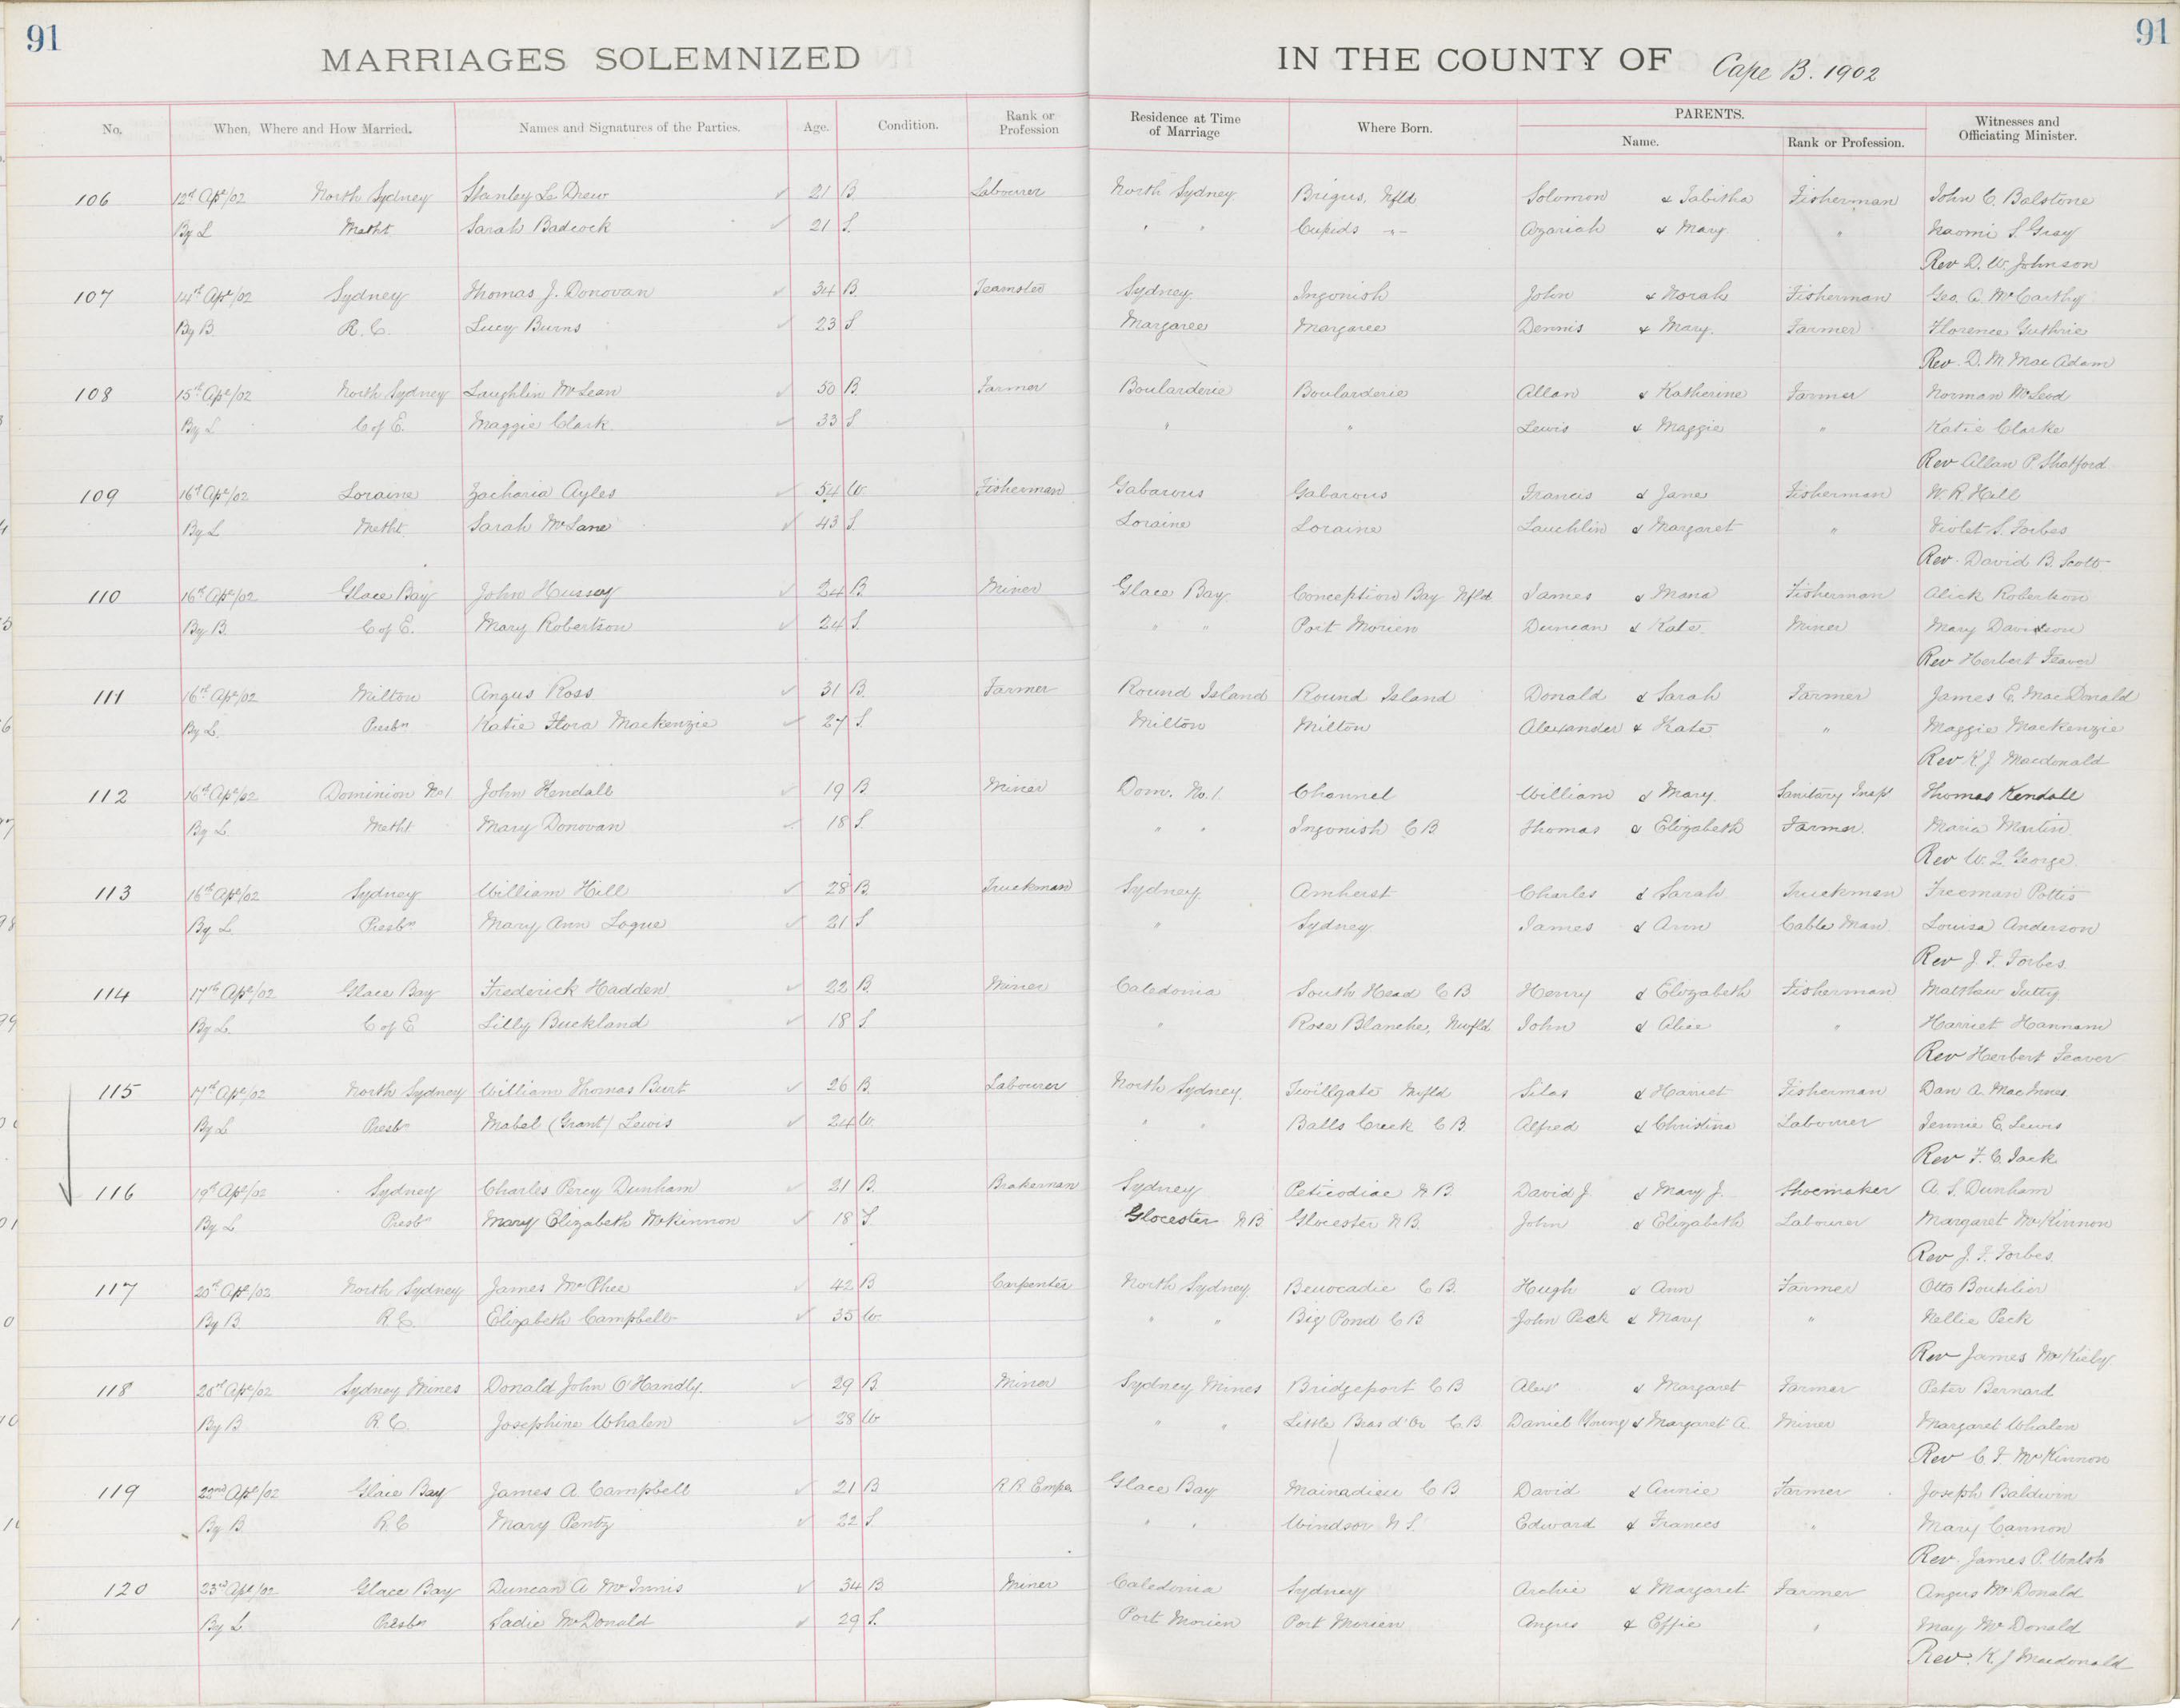 91
91
MARRIAGES SOLEMNIZED IN THE COUNTY OF Cape B. 1902
No. When, Where and How Married. Names and Signatures of the Parties. Age. Condition. Rank or Profession Residence at Time of Marriage Where Born. PARENTS. Name. Rank or Profession. Witnesses and Officiating Minister.
106 12th Apl/02 North Sydney Stanley Le Drew 21 B. Labourer North Sydney Brigus, Nfld Solomon & Tabitha Fisherman John C. Balstone
By L Metht. Sarah Badcock 21 S. " " Cupids -"- Azariah & Mary " Naomi S. Gray
Rev D. W. Johnson
107 14th Apl/02 Sydney Thomas J. Donovan 34 B. Teamster Sydney Ingonish John & Norah Fisherman Geo. A. McCarthy
By B. R. C. Lucy Burns 23 S. Margaree Margaree Dennis & Mary. Farmer Florence Guthrie
Rev. D. M. MacAdam
108 15th Apl/02 North Sydney Laughlin McLean 50 B. Farmer Boularderie Boularderie Allan & Katherine Farmer Norman McLeod
By L C of E. Maggie Clark 33 S " " Lewis & Maggie " Katie Clarke
Rev Allan P. Shatford
109 16th Apl/02 Loraine Zacharia Ayles 54 W Fisherman Gabarous Gabarous Francis & Jane Fisherman W. R. Hill
By L Metht. Sarah McLane 43 S. Loraine Loraine Lauchlin & Margaret " Violet S. Forbes
Rev. David B. Scott
110 16th Apl/02 Glace Bay John Hussey 24 B Miner Glace Bay Conception Bay Nfld James & Mana Fisherman Alick Robertson
By B. C of E. Mary Robertson 24 S. " " Port Morien Duncan & Kate. Miner Mary Davidson
Rev Herbert Feaver
111 16th Apl/02 Milton Angus Ross 31 B. Farmer Round Island Round Island Donald & Sarah Farmer James E. MacDonald
By L. Presbn Katie Flora Mackenzie 27 S. Milton Milton Alexander & Kate " Maggie Mackenzie
Rev K. J. Macdonald
112 16th Apl/02 Dominion No 1 John Kendall 19 B Miner Dom. No. 1. Channel William & Mary. Sanitary Insp. Thomas Kendall
By L Metht Mary Donovan 18 S. " " Ingonish C B. Thomas & Elizabeth Farmer. Maria Martin
Rev W. Q. George
113 16th Apl/02 Sydney William Hill 28 B. Truckman Sydney Amherst Charles & Sarah Truckman Freeman Pottis
By L. Presbn Mary Ann Logue 21 S " Sydney James & Ann Cable Man Louisa Anderson
Rev J. F. Forbes
114 17th Apl/02 Glace Bay Frederick Hadden 22 B. Miner Caledonia South Head C B Henry & Elizabeth Fisherman Matthew Tutty
By L. C of E Lilly Buckland 18 S. " Rose Blanche, Nwfld John & Alice " Harriet Hannam
Rev Herbert Feaver
115 17th Apl/02 North Sydney William Thomas Burt 26 B. Labourer North Sydney Twillgate Nwfld Silas & Harriet Fisherman Dan A. MacInnes
By L Presbn Mabel (Grant) Lewis 24 W. " " Balls Creek C B. Alfred & Christina Labourer Jennie E. Lewis
Rev F. C. Jack
116 19th Apl/02 Sydney Charles Percy Dunham 21 B. Brakeman Sydney Peticodiac N B David J. & Mary J. Shoemaker A. S. Dunham
By L Presbn Mary Elizabeth McKinnon 18 S. Glocester N B Glocester N B. John & Elizabeth Labourer Margaret McKinnon
Rev J. F. Forbes
117 20th Apl/02 North Sydney James McPhee 42 B Carpenter North Sydney Beuocadie C B. Hugh & Ann Farmer Otto Boutilier
By B. R. C. Elizabeth Campbell 35 W " " Big Pond C B John Peck & Mary " Nellie Peck
Rev James McKiely
118 20th Apl/02 Sydney Mines Donald John O'Handly. 29 B. Miner Sydney Mines Bridgeport C B Alexr & Margaret Farmer Peter Bernard
By B R. C. Josephine Whalen 28 W " " Little Bras d'Or C. B. Daniel Young & Margaret A. Miner Margaret Whalen
Rev C. F. McKinnon
119 22nd Apl/02 Glace Bay James A Campbell 21 B R. R. Empe Glace Bay Mainadieu C B David & Annie Farmer Joseph Baldwin
By B. R. C Mary Pentz 22 S. " " Windsor N S. Edward & Frances " Mary Cannon
Rev James P. Walsh
120 23rd Apl/02 Glace Bay Duncan A McInnis 34 B Miner Caledonia Sydney Archie & Margaret Farmer Angus McDonald
By L Presbn Sadie McDonald 29 S. Port Morien Port Morien Angus & Effie " May McDonald
Rev. K. J Macdonald